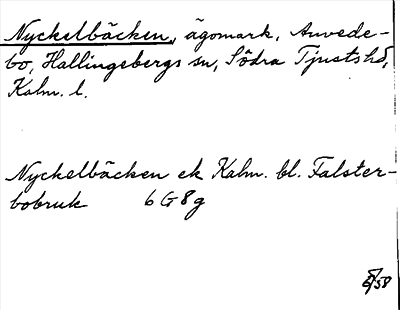 Nyckelbäcken, ägomark, Anvede-
bo, Hallingebergs sn, Södra Tjusts hd,
Kalm. l.
Nyckelbäcken ek Kalm. bl. Falster-
bobruk 6 G 8 g